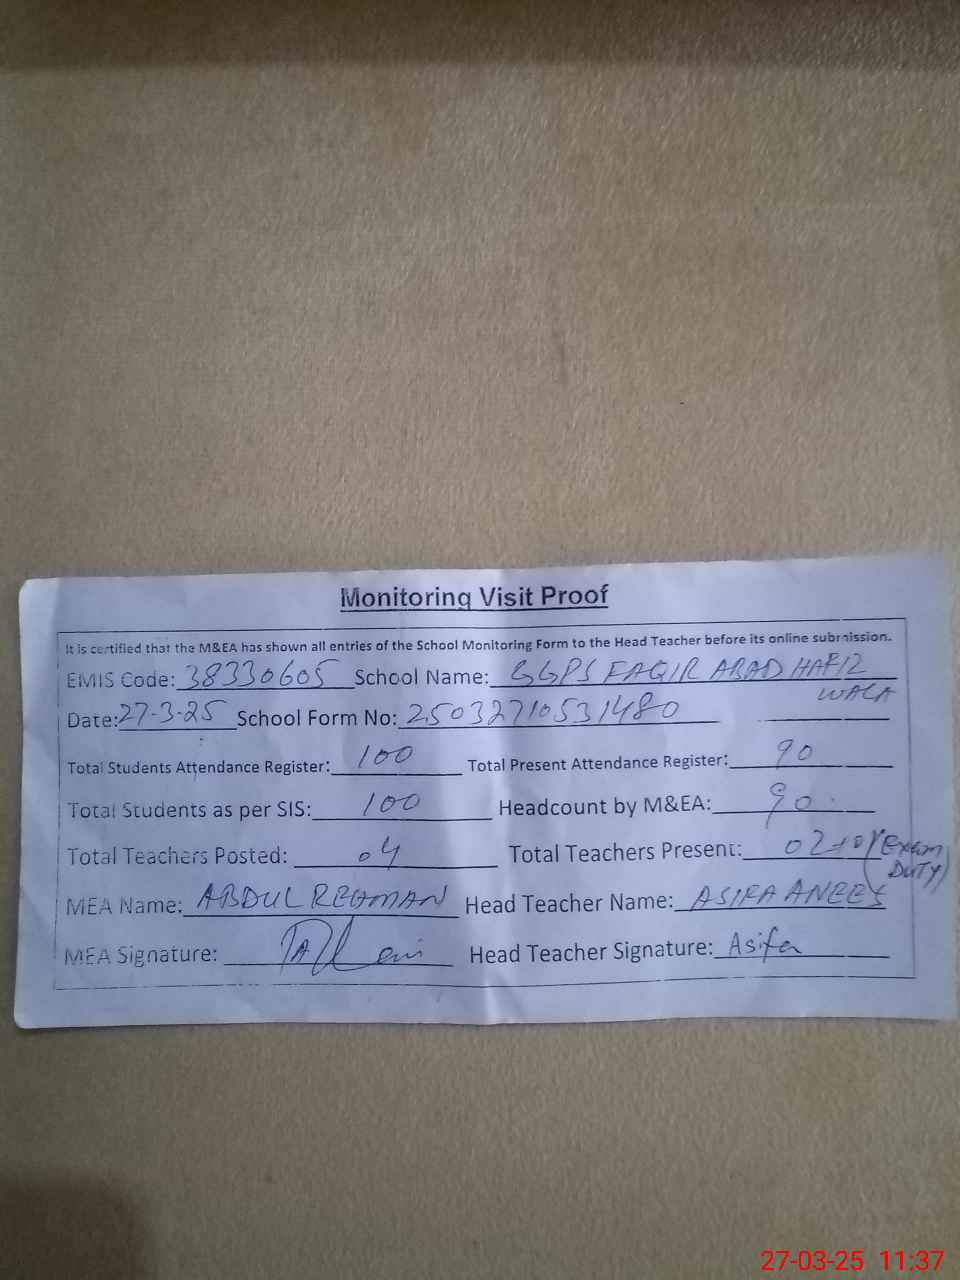 Monitoring Visit Proof
It is certified that the M&EA has shown all entries of the School Monitoring Form to the Head Teacher before its online submission.
EMIS Code: 38330605 School Name: GGPS FAQIR ABAD HAFIZ
WALA
Date: 27-3-25 School Form No: 25032710531480
Total Students Attendance Register: 100 Total Present Attendance Register: 90
Total Students as per SIS: 100 Headcount by M&EA: 90
Total Teachers Posted: 04 Total Teachers Present: 02+01 (Exam
DUTY)
MEA Name: ABDUL REHMAN Head Teacher Name: ASIFA ANEES
MEA Signature: Head Teacher Signature: Asifa
27-03-25 11:37